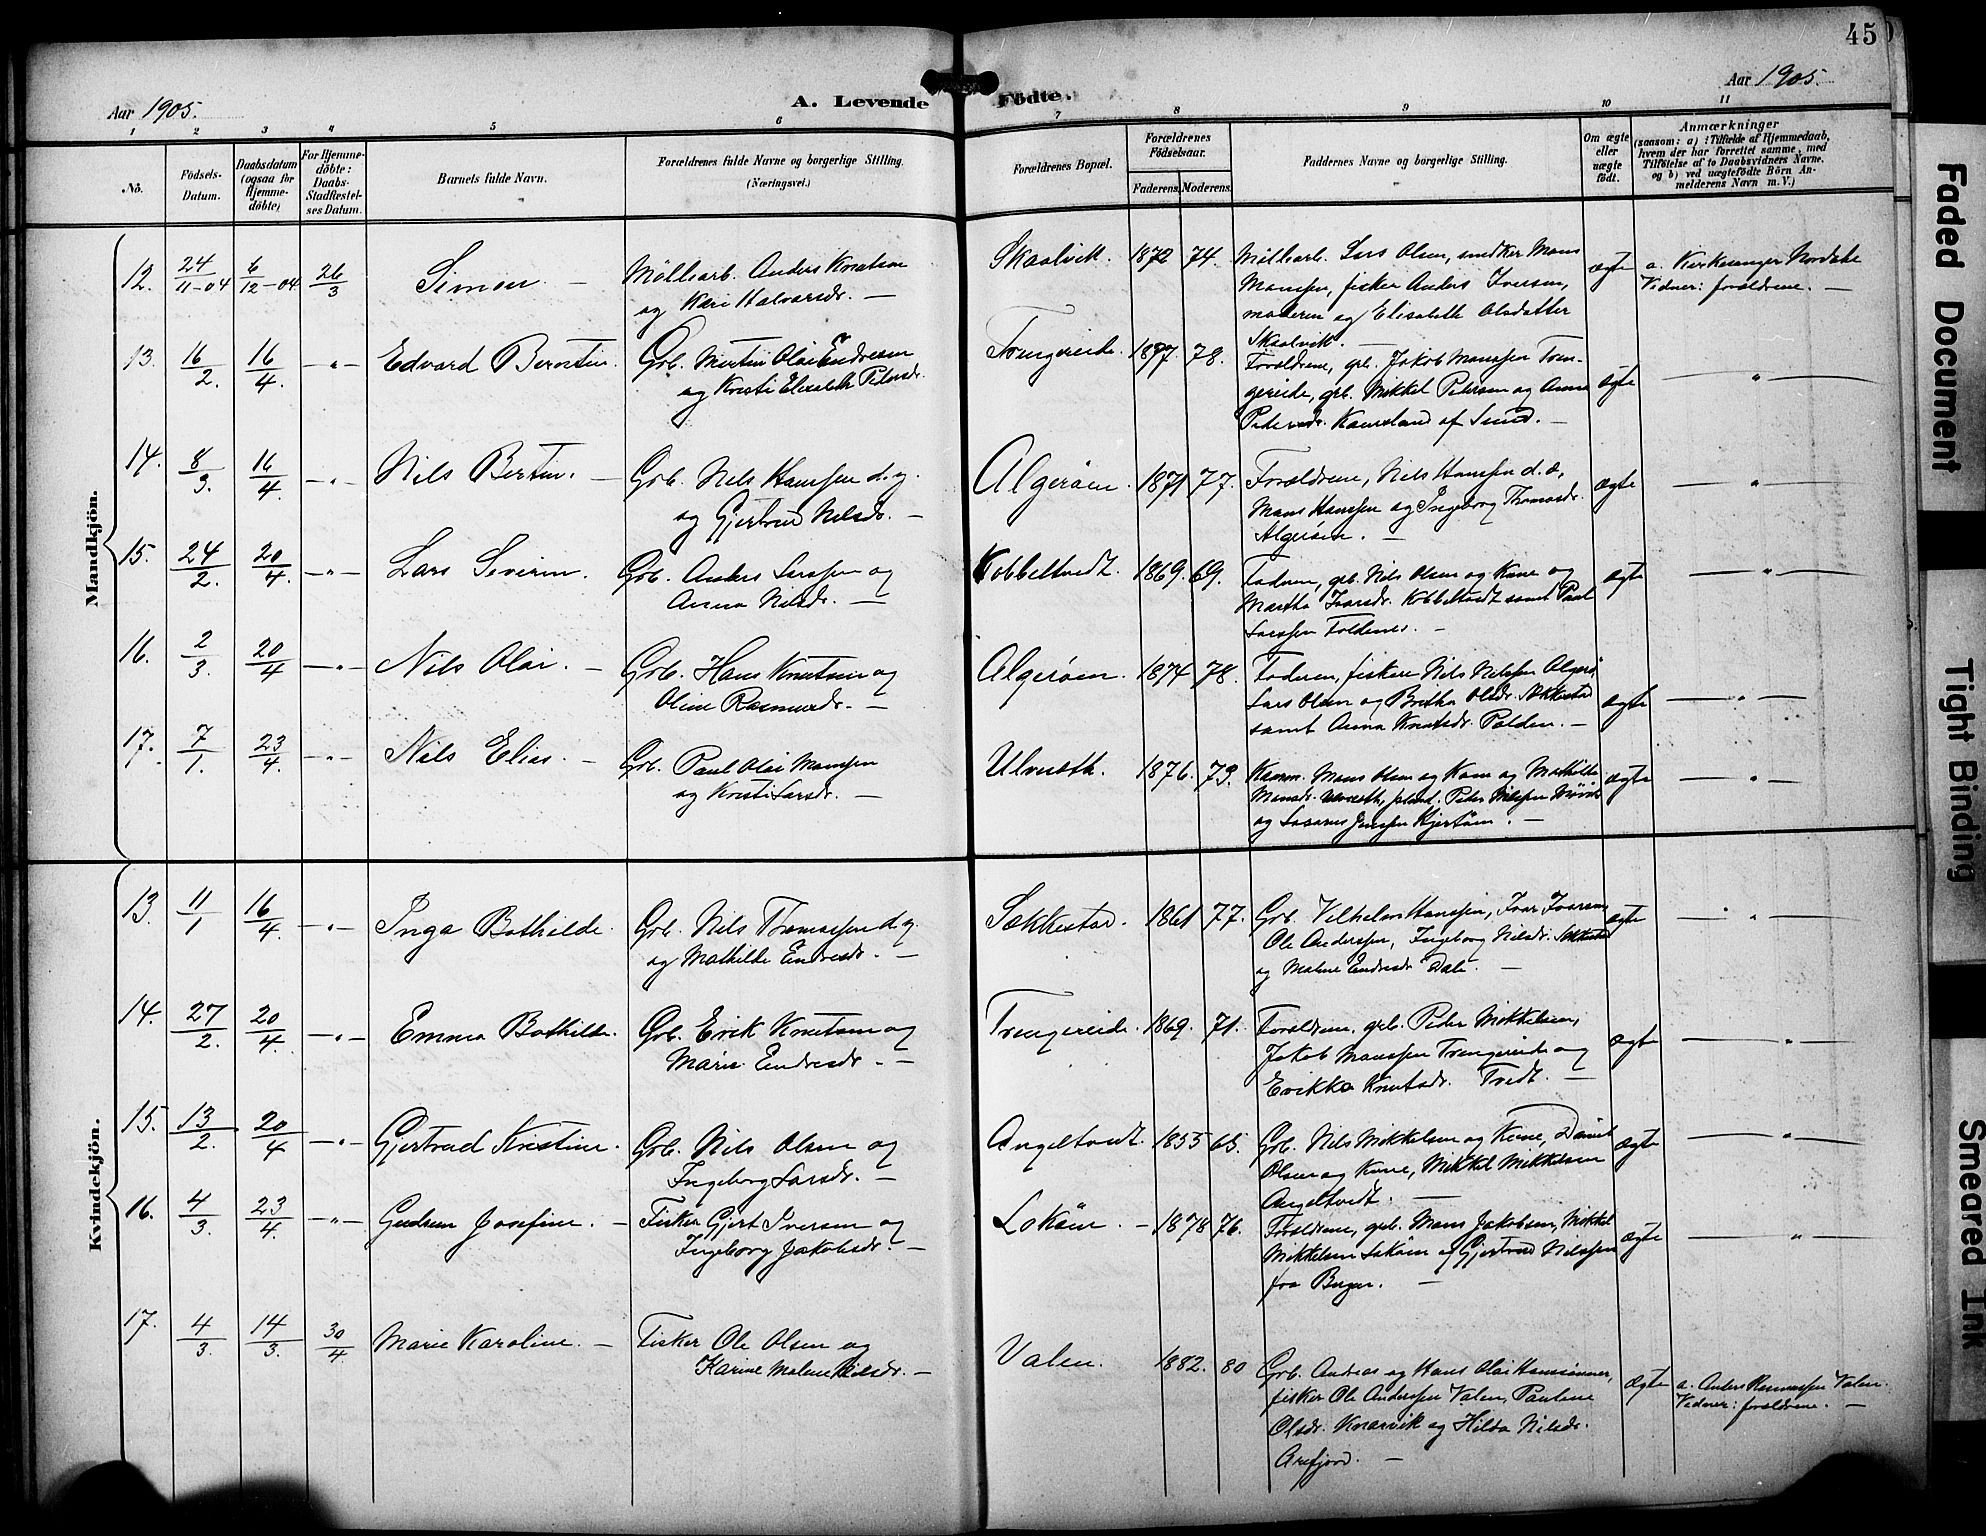 45
Aar 1905.
A. Levende Födte.
Aar 1905.
1 2 3 4 5 6 7 8 9 10 11
No.
Födsels-Datum.
Daabsdatum (ogsaa för Hjemme-döbte)
For Hjemme-döbte: Daabs-Stadfæstel-ses Datum.
Barnets fulde Navn.
Forældrenes fulde Navne og borgerlige Stilling. (Næringsvei.)
Forældrenes Bopæl.
Forældrenes Födselsaar.
Faderens. Moderens.
Faddernes Navne og borgerlige Stilling.
Om ægte eller uægte födt.
Anmærkninger
(saasom: a) i Tilfælde af Hjemmedaab,
hvem der har forrettet samme, med
Tilföielse af to Daabsvidners Navne,
og b) ved uægtefödte Börn An-
melderens Navn m. V.)
Mandkjön.
12. 24/11-04 6/12-04 26/3 Simon. — Mölliarb. Anders Knutsen
og Kari Halvorsdr. —
Skaalvik. 1872 74. Mölliarb. Lars Olsen, snedker Mons
Monssen, fisker Anders Iversen,
moderen og Elisabeth Olsdatter
Skaalvik. —
ægte a. Kirkesanger Nordvik
Vidner: forældrene. —
13. 16/2. 16/4. —"— Edvard Berntin. Grb. Martin Olai Endresen
og Kristi Elisabeth Petersdr.
Trengereide. 1877. 78. Forældrene, grb. Jakob Monssen Tren-
gereide, grb. Mikkel Petersen og Anna
Petersdr. Kausland af Sund. —
ægte — " —
14. 8/3. 16/4. —"— Nils Bertin. — Grb. Nils Hanssen d. y.
og Gjertrud Nilsdr. —
Algeröen. 1871 77. Forældrene, Nils Hanssen d. æ,
Mons Hanssen og Ingeborg Thomasdr.
Algeröen. —
ægte — " —
15. 24/2. 20/4. —"— Lars Severin. Grb. Anders Larssen og
Anna Nilsdr. —
Kobbeltvedt. 1869. 69. Faderen, grb. Nils Olsen og Kone og
Martha Ivarsdr. Kobbeltvedt samt Paul
Larssen Toldnes. —
ægte — " —
16. 2/3. 20/4 —"— Nils Olai. — Grb. Hans Knutsen og
Oline Rasmusdr. —
Algeröen. 1874 78. Faderen, fisker Nils Nilssen Algerö,
Lars Olsen og Britha Olsdr. Sekkestad
samt Anna Knutsdr. Polden. —
ægte — " —
17. 7/1. 23/4. —"— Nils Elias. — Grb. Paul Olai Monssen
og Kristi Larsdr. —
Ulveseth. 1876. 73. Mons Olsen og Kone og Mathilde
Monsdr. Ulveseth, Peder Nilssen
og Lasarus Jenssen —
ægte — " —
Kvindekjön.
13. 11/1 16/4. —"— Inga Bothilde. Grb. Nils Thomassen d. y.
og Mathilde Endresdr. —
Sekkestad. 1861 77. Grb. Vilhelm Hanssen, Ivar Ivarsen
Ole Anderssen, Ingeborg Nilsdr. Sekkestad
og Malene Endresdr. Dale. —
ægte — " —
14. 27/2. 20/4. —"— Emma Bothilde. Grb. Erik Knutsen og
Marie Endresdr. —
Trengereide. 1869. 71. Forældrene, grb. Peder Mikkelsen,
Jakob Monssen Trengereide og
Erikka Knutsdr. Tvedt. —
ægte — " —
15. 13/2. 20/4 —"— Gjertrud Kristine. Grb. Nils Olsen og
Ingeborg Larsdr. —
Angeltvedt. 1855 65. Grb. Nils Mikkelsen og Kone, Daniel
Olsen og Kone, Mikkel Mikkelsen
Angeltvedt. —
ægte — " —
16. 4/3 23/4. —"— Gudrun Josefine. — Fisker Gjert Iversen og
Ingeborg Jakobsdr. —
Loköen. — 1878 76. Forældrene, grb. Mons Jakobsen, Mikkel
Mikkelsen Loköen og Gjertrud Nilssen
fra Bergen. —
ægte — " —
17. 4/3. 14/3. 30/4. Marie Karoline. — Fisker Ole Olsen og
Karine Malene Nilsdr. —
Valen. 1882. 80 Grb. Andreas og Hans Olai Hanssönner,
fisker Ole Anderssen Valen, Pauline
Olsdr. Knarvik og Hilda Nilsdr.
Arefjord. —
ægte a. Anders Rasmussen Valen.
Vidner: forældrene. —
Faded Document
Tight Binding
Smeared Ink